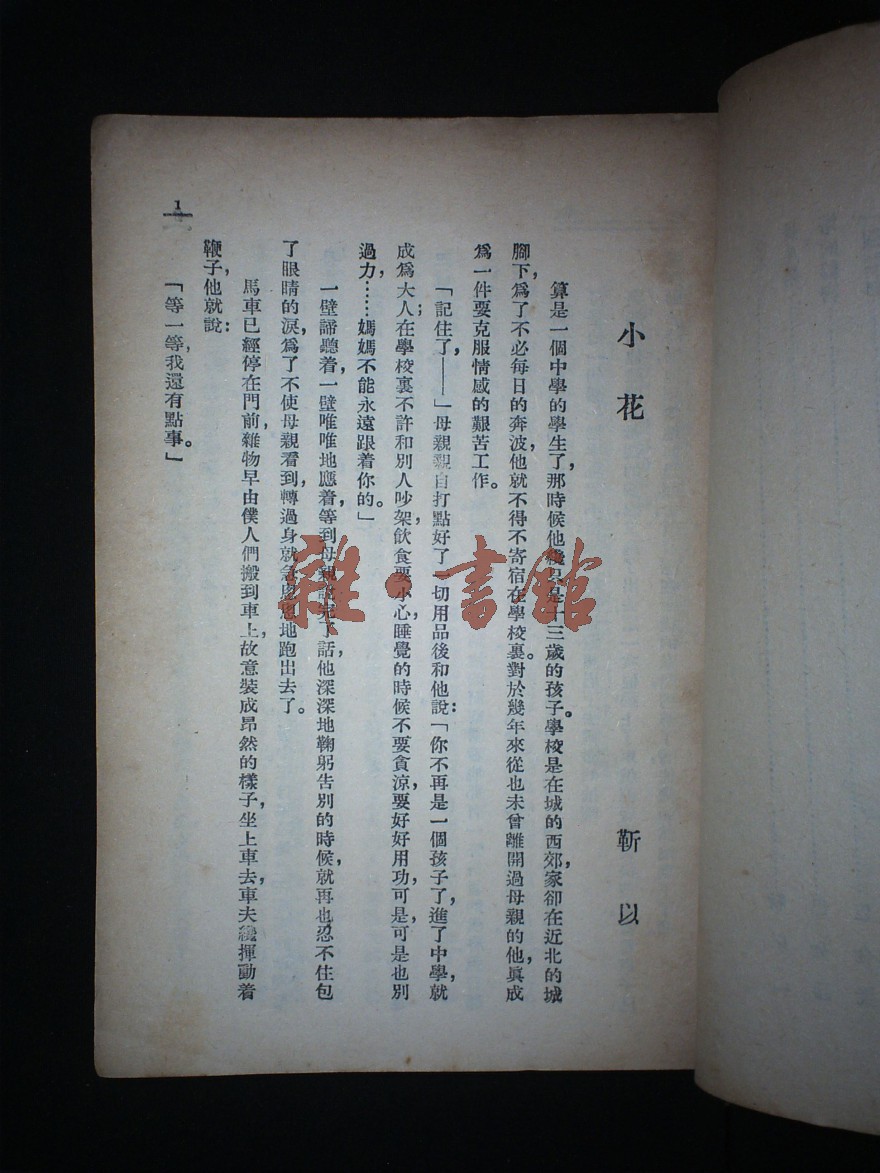 小花
靳以
算是一個中學的學生了，那時候他纔只是十三歲的孩子。學校是在城的西郊，家卻在近北的城
脚下，爲了不必每日的奔波，他就不得不寄宿在學校裏。對於幾年來從也未曾離開過母親的他，眞成
爲一件要克服情感的艱苦工作。
「記住了，——」母親親自打點好了一切用品後和他說：「你不再是一個孩子了，進了中學，就
成爲大人；在學校裏不許和別人吵架，飲食要小心，睡覺的時候不要貪涼，要好好用功，可是，可是也別
過力，……媽媽不能永遠跟着你的。」
一壁諦聽着，一壁唯唯地應着，等到母親說完了話，他深深地鞠躬告別的時候，就再也忍不住包
了眼睛的淚，爲了不使母親看到，轉過身就急急地跑出去了。
馬車已經停在門前，雜物早由僕人們搬到車上，故意裝成昂然的樣子，坐上車去，車夫纔揮動着
鞭子，他就說：
「等一等，我還有點事。」
1
雜·書館